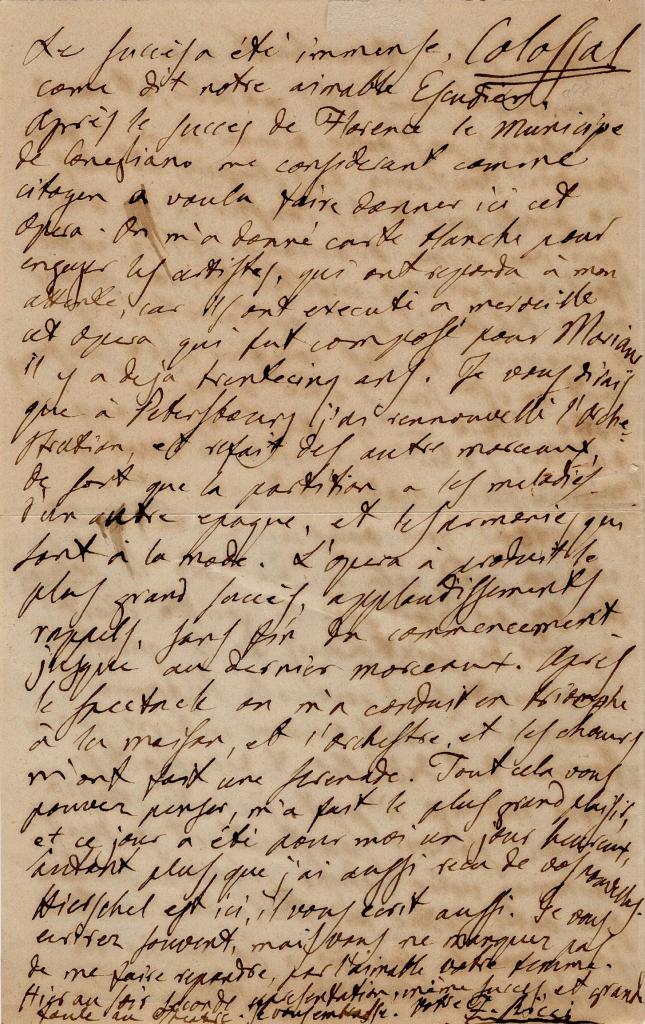 Le succès a été immense, Colossal
come dit notre aimable Escudier.
Après le succes de Florence le Municipe
de Conegliano me considerant comme
citoyen a voulu faire donner ici cet
opera. On m'a donné carte blanche pour
engager les artistes, qui ont repondu à mon
attente, car ils ont executé a merveille
cet opera qui fut composé pour Moriani
il y a dejà trentecinq ans. Je vous dirais
que à Petersbourg j'ai rennouvellé l'orche-
stration, et refait des autre morceaux,
de sort que la partition a les melodies
d'un autre epoque, et les armonies qui
sont à la mode. L'opera à produit le
plus grand succès, applaudissements
rappels, sans fin du commencement
jusque au dernier morceaux. Après
le spectacle on m'a conduit en triomphe
à la maison, et l'orchestre et les choeurs
m'ont fait une serenade. Tout cela vous
pouvez penser, m'a fait le plus grand plaisir,
et ce jour a été pour moi un jour heureux,
autant plus, que j'ai aussi recu de vos nouvelles.
Hierschel est ici, il vous ecrit aussi. Je vous
ecrirez souvent, mais vous ne manquez pas
de me faire repondre, par l'aimable votre femme.
Hier au soir seconde representation, même succes et grande
foule au Theatre. Je vous embrasse. Votre L. Ricci